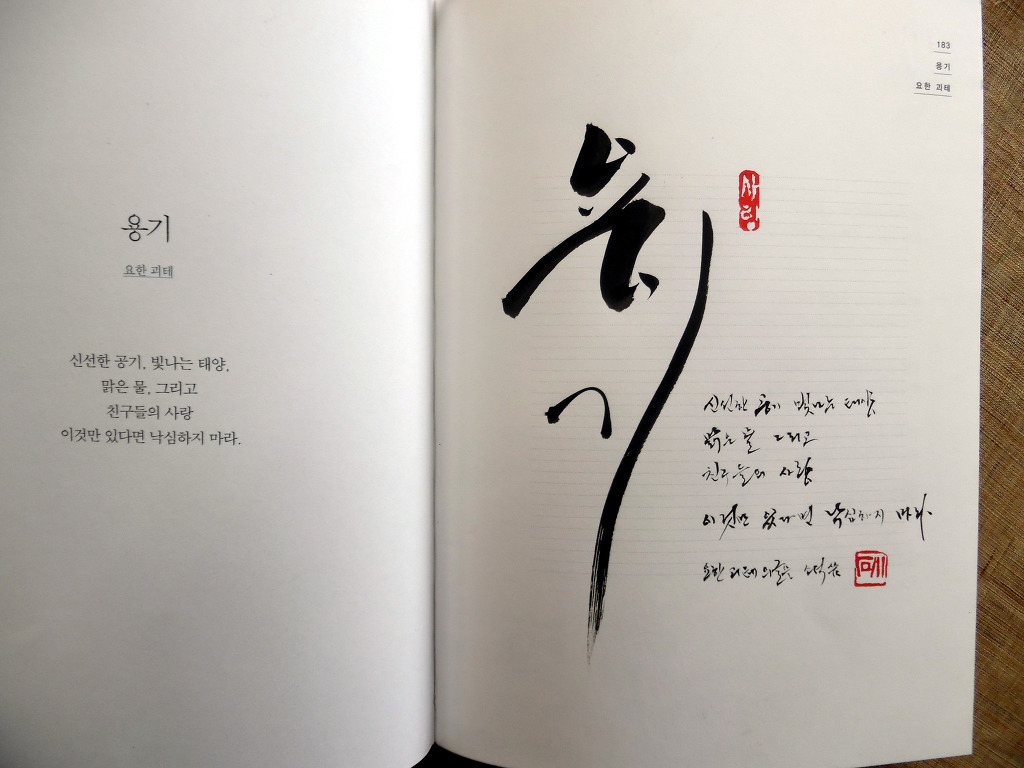 용기
요한 괴테
신선한 공기, 빛나는 태양,
맑은 물, 그리고
친구들의 사랑
이것만 있다면 낙심하지 마라.
183
용기
요한 괴테
용기
사랑
신선한 공기 빛나는 태양
맑은 물 그리고
친구들의 사랑
이것만 있다면 낙심하지 마라.
요한 괴테의 글을